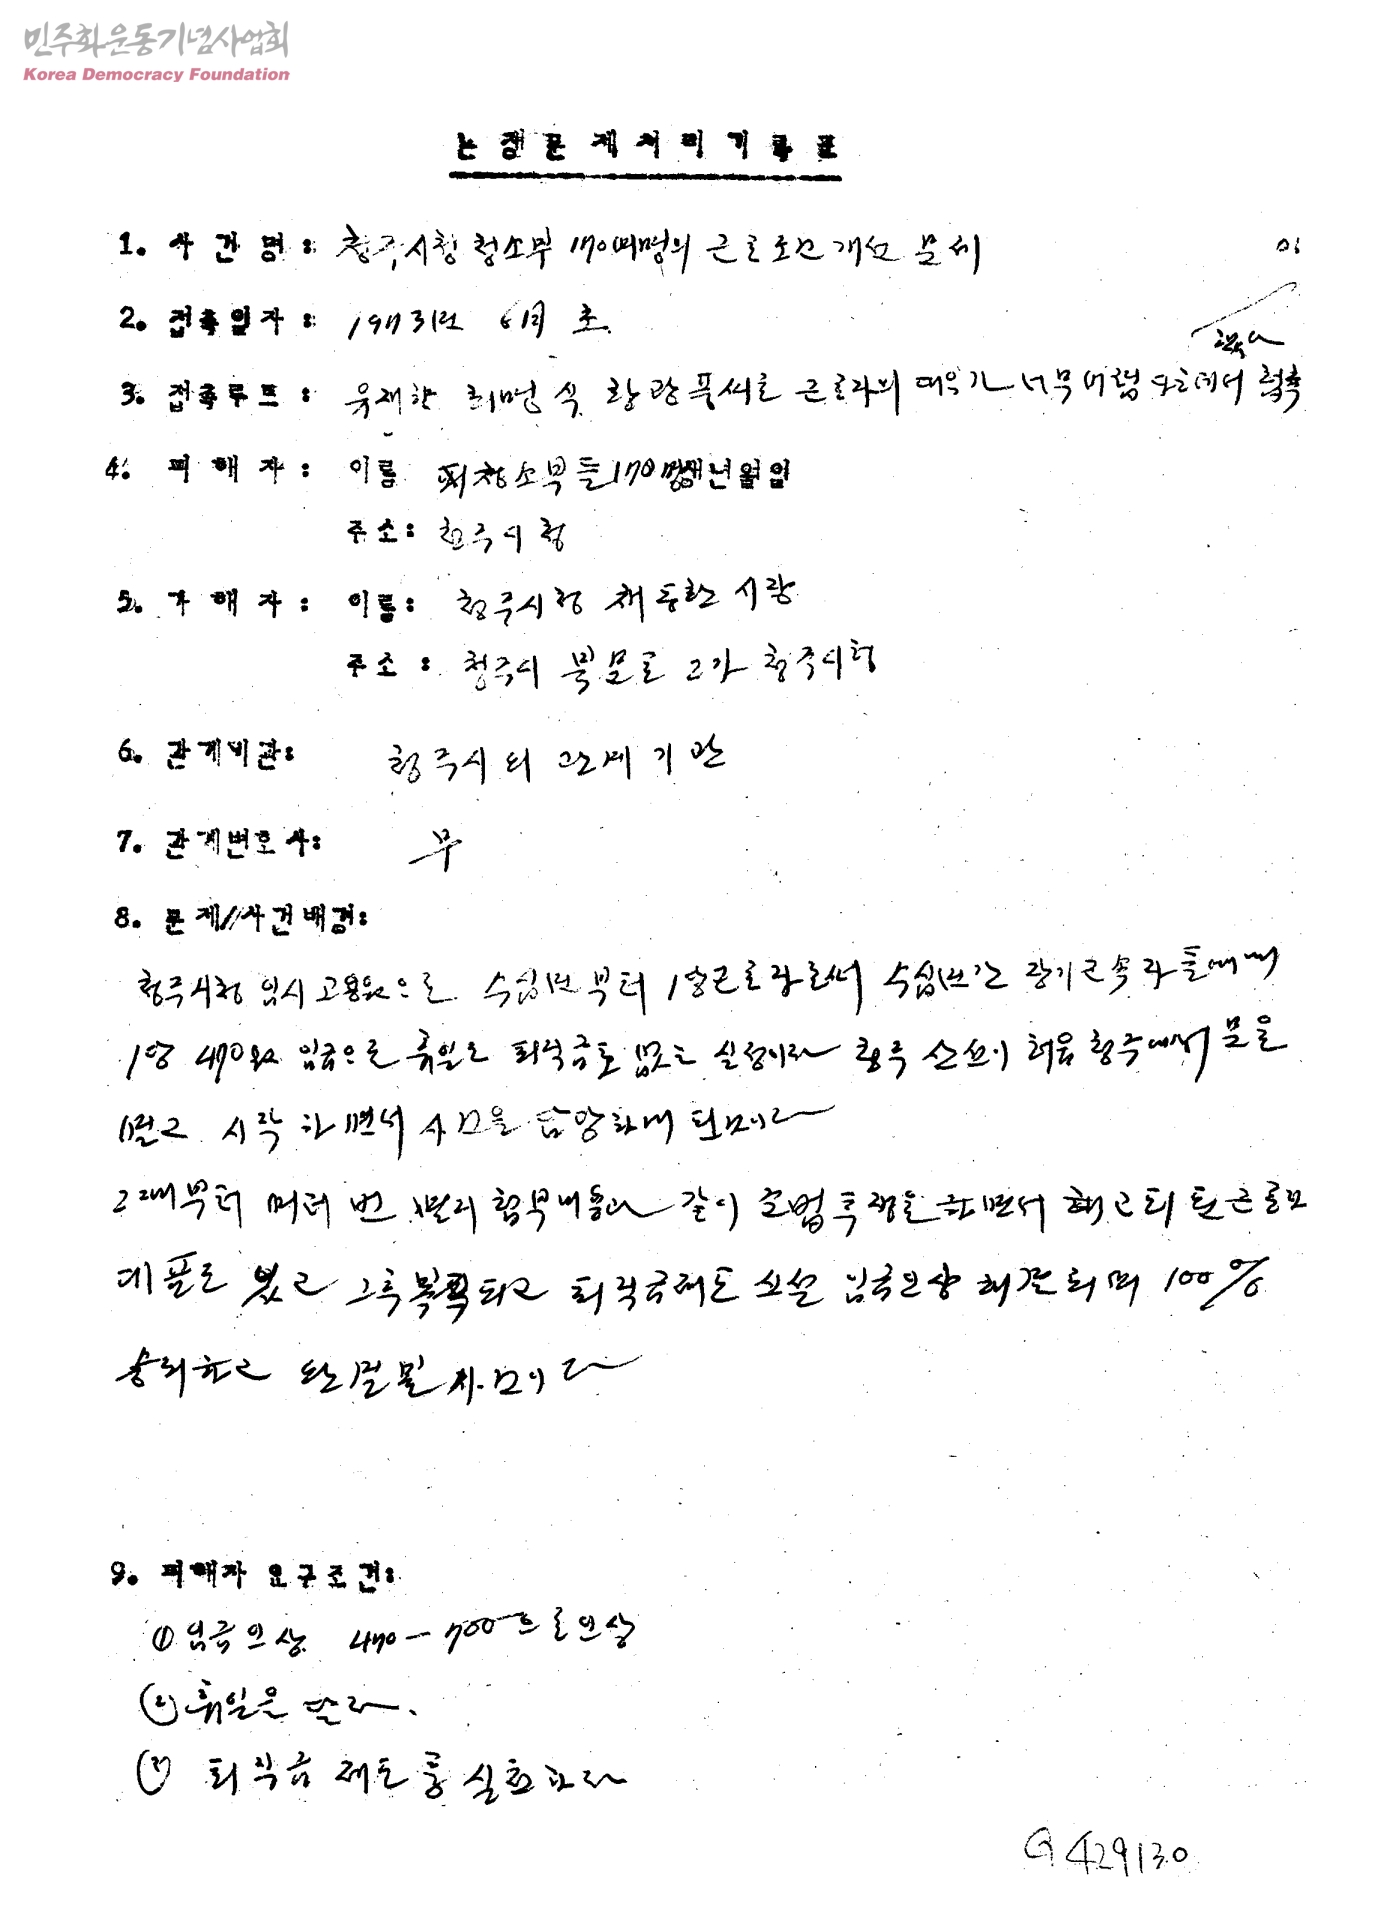 민주화운동기념사업회
Korea Democracy Foundation
논쟁문제처리기록표
1. 사건명: 청주시청 청소부 170여명의 근로조건 개선 문제
2. 접촉일자: 1973년 6월 초.
3. 접촉루트: 유재한 최명식 황광풍씨로 근로자의 대우가 너무 접촉
4. 피해자: 이름 청소부들 170명 생년월일
주소: 청주시청
5. 가해자: 이름: 청주시청 채동환 시장
주소: 청주시 북문로 2가 청주시청
6. 관계기관: 청주시의 관계기관
7. 관계변호사: 무
8. 문제/사건배경:
청주시청 임시 고용원으로 수십년부터 근로자로서 수십년간 장기근속자들에게
1일 470원 임금으로 휴일도 퇴직금도 없는 실정이라 청주 산선이 처음 청주에서 문을
열고 시작하면서 사건을 담당하게 된것이다
그때부터 여러 번 같이 준법투쟁을 하면서 해고된 근로자
데플로 있고 그후 복직되고 퇴직금제도 신설 임금인상 해결되며 100%
승리하고 완결될 사건이다
9. 피해자 요구조건:
① 임금인상 470-700으로인상
② 휴일을 달라.
③ 퇴직금 제도를 실현하라
G 429130